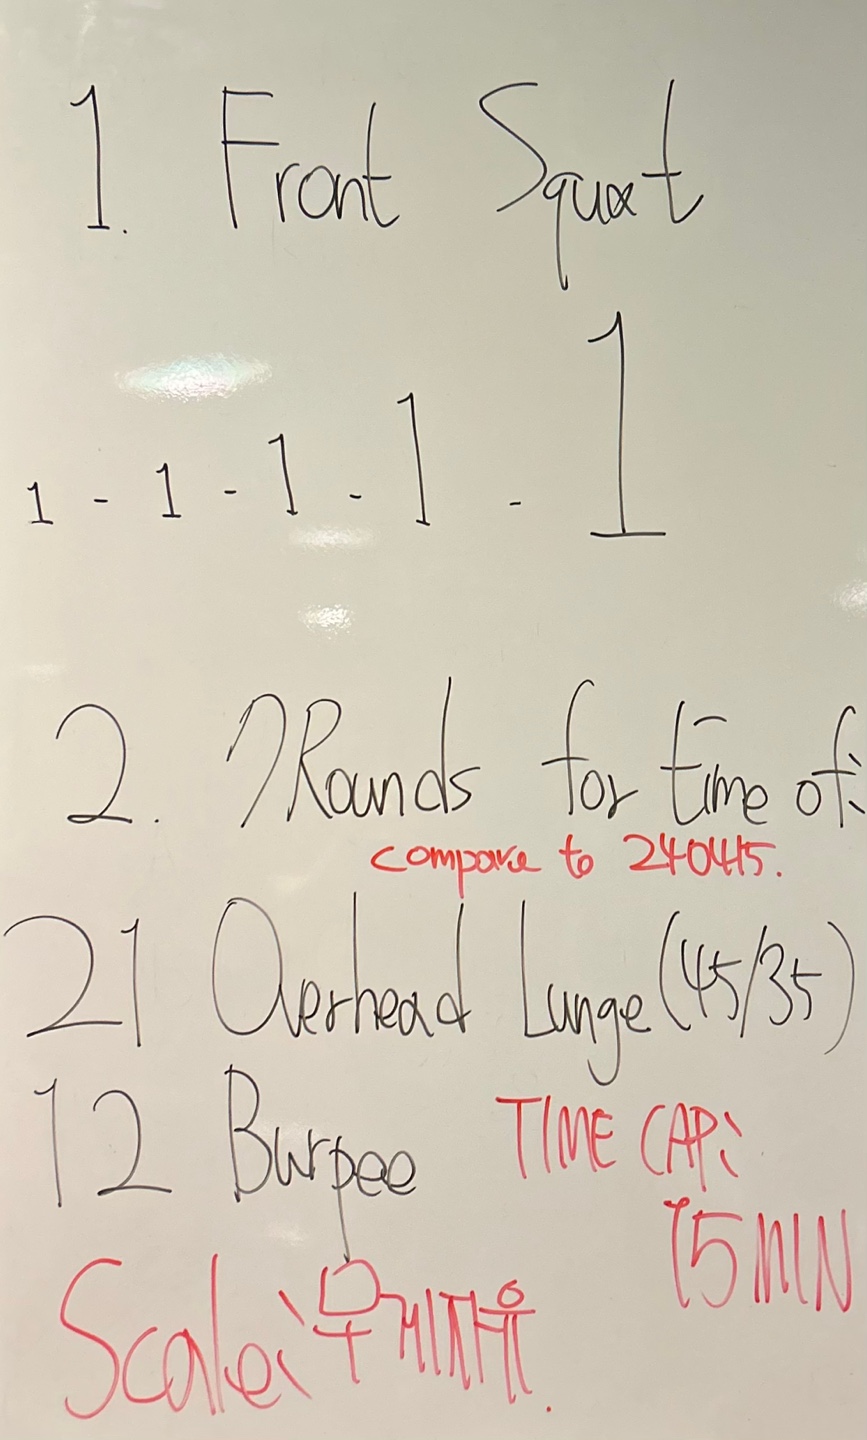 1. Front Squat
1 - 1 - 1 - 1 - 1
2. 7Rounds for time of:
compare to 240415.
21 Overhead Lunge (45/35)
12 Burpee
TIME CAP:
15 MIN
Scale: 무게자유.